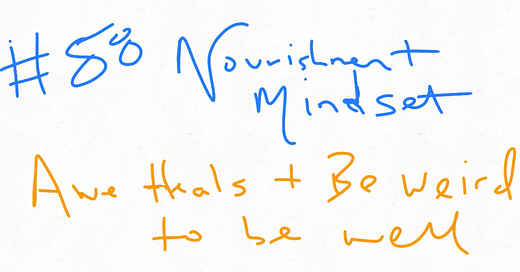 #58 Nourishment
Mindset
Awe Heals + Be weird
to be well